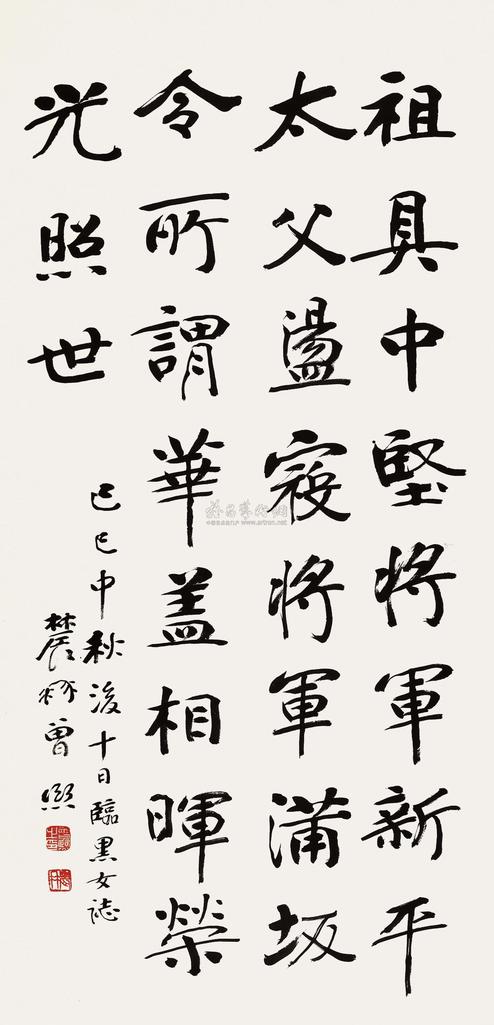 祖具中堅將軍新平
太父盪寇將軍蒲坂
令所謂華蓋相暉榮
光照世
己巳中秋後十日臨黑女誌
農髯曾熙
www.artron.net